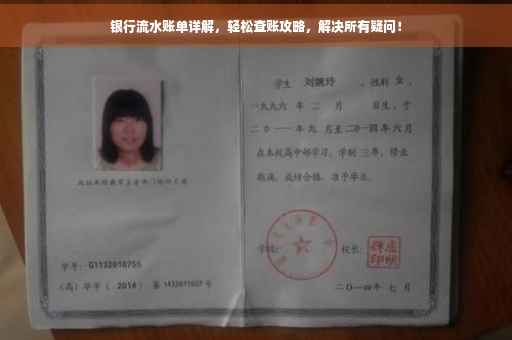 银行流水账单详解，轻松查账攻略，解决所有疑问！
学生 刘婉玲 ，性别 女 ，
一九九六 年 二 月 日生，于
二〇一一 年 九 月至 二〇一四 年 六 月
在本校高中部学习，学制 三 年，修业
期满，成绩合格，准予毕业。
学号：G1132010755
（高）毕字（ 2014 ）第 1432011007 号
学校：
校长：
二〇一四年 七 月